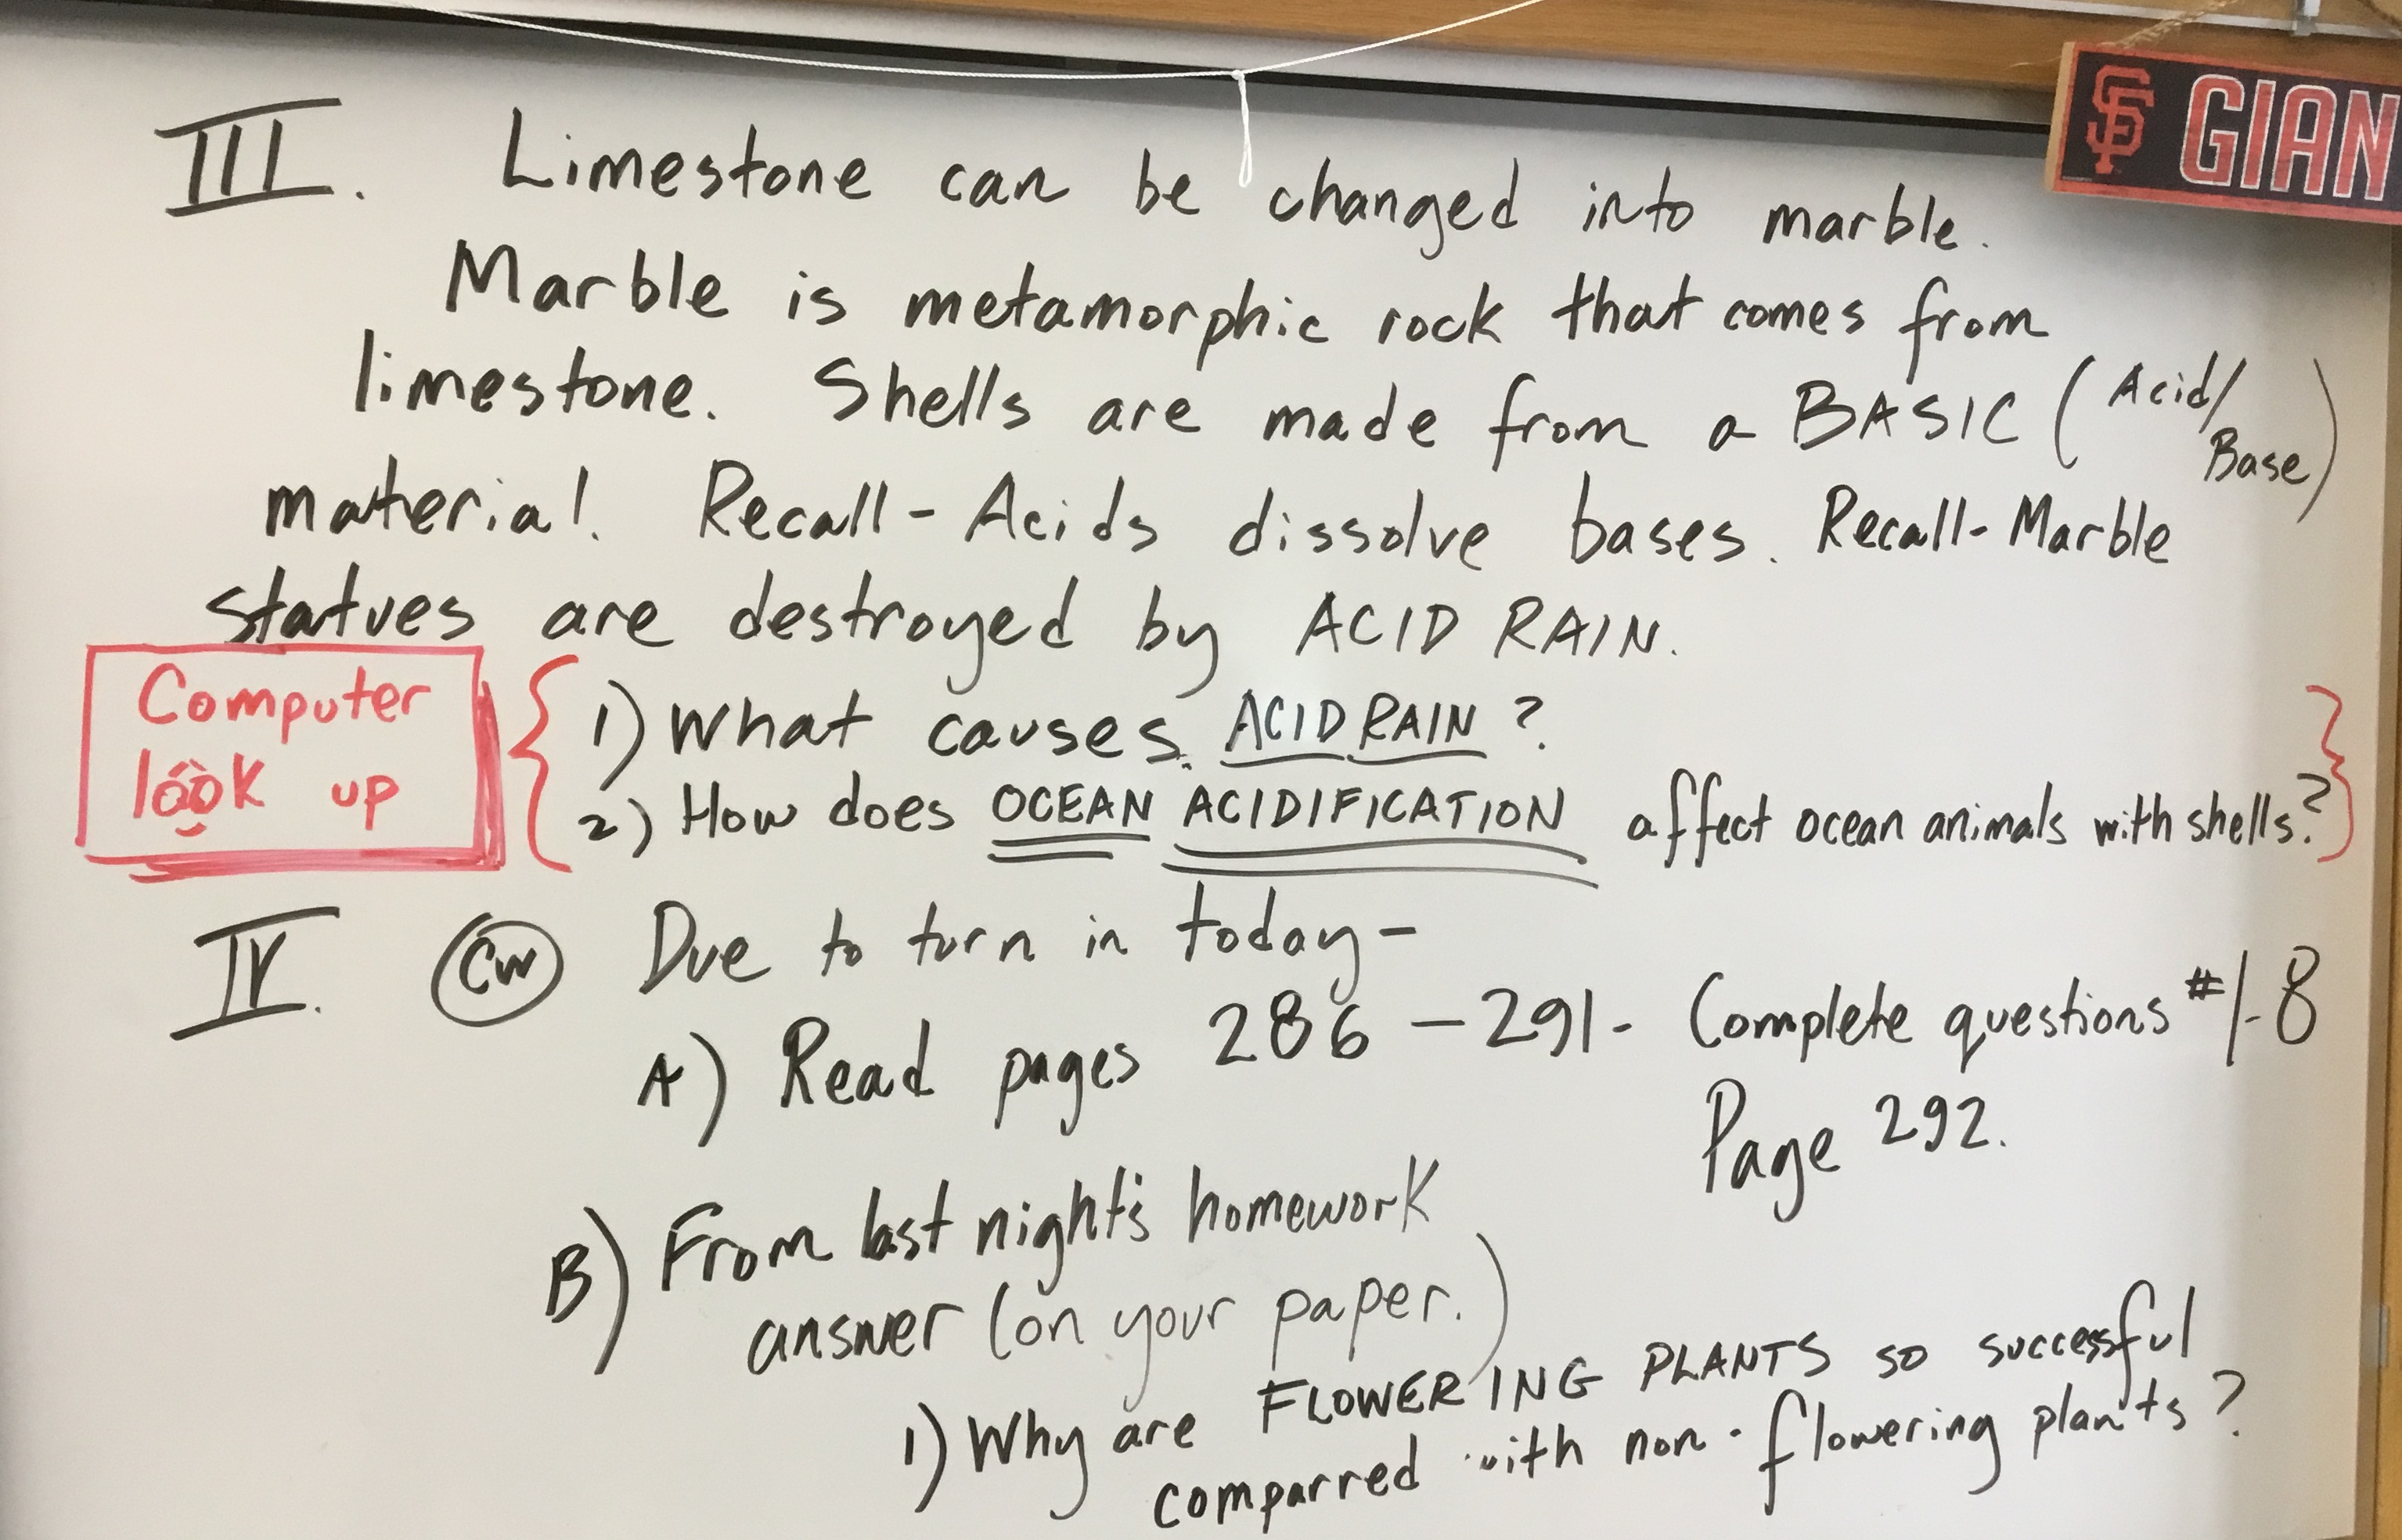 SF GIAN
III. Limestone can be changed into marble.
Marble is metamorphic rock that comes from
limestone. Shells are made from a BASIC (Acid/
Base)
material. Recall - Acids dissolve bases. Recall - Marble
statues are destroyed by ACID RAIN.
Computer
look up
1) What causes ACID RAIN?
2) How does OCEAN ACIDIFICATION affect ocean animals with shells?
IV. CW Due to turn in today -
A) Read pages 286 - 291 - Complete questions #1-8
Page 292.
B) From last night's homework
answer (on your paper.)
1) Why are FLOWERING PLANTS so successful
comparred with non-flowering plants?